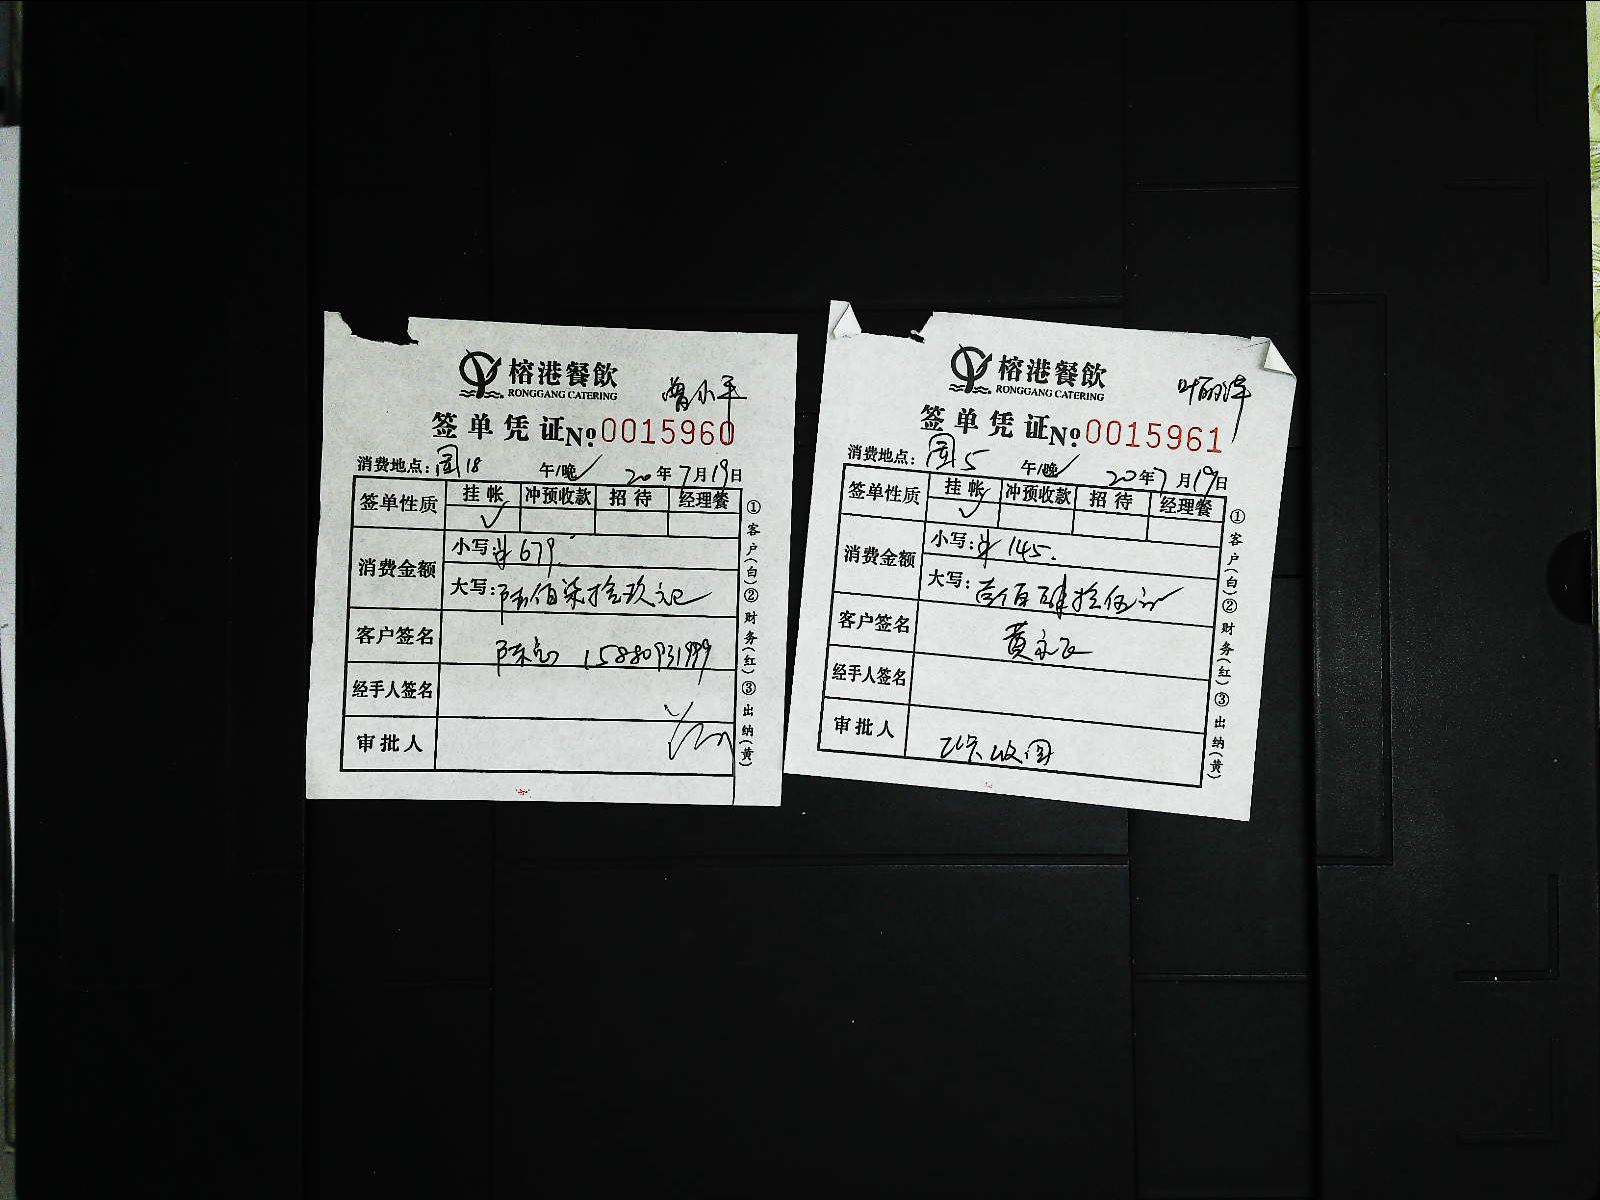 榕港餐飲
RONGGANG CATERING
曾小平
签单凭证 No 0015960
消费地点: 18 午/晚✓ 20年7月19日
签单性质 挂帐 冲预收款 招待 经理餐
✓
消费金额 小写:¥679.
大写:陆佰柒拾玖元
客户签名 15880931999
经手人签名
审批人
①客户(白)②财务(红)③出纳(黄)
榕港餐飲
RONGGANG CATERING
签单凭证 No 0015961
消费地点: 5 午/晚✓ 20年7月19日
签单性质 挂帐 冲预收款 招待 经理餐
✓
消费金额 小写:¥145.
大写:壹佰肆拾伍元
客户签名
经手人签名
审批人
①客户(白)②财务(红)③出纳(黄)